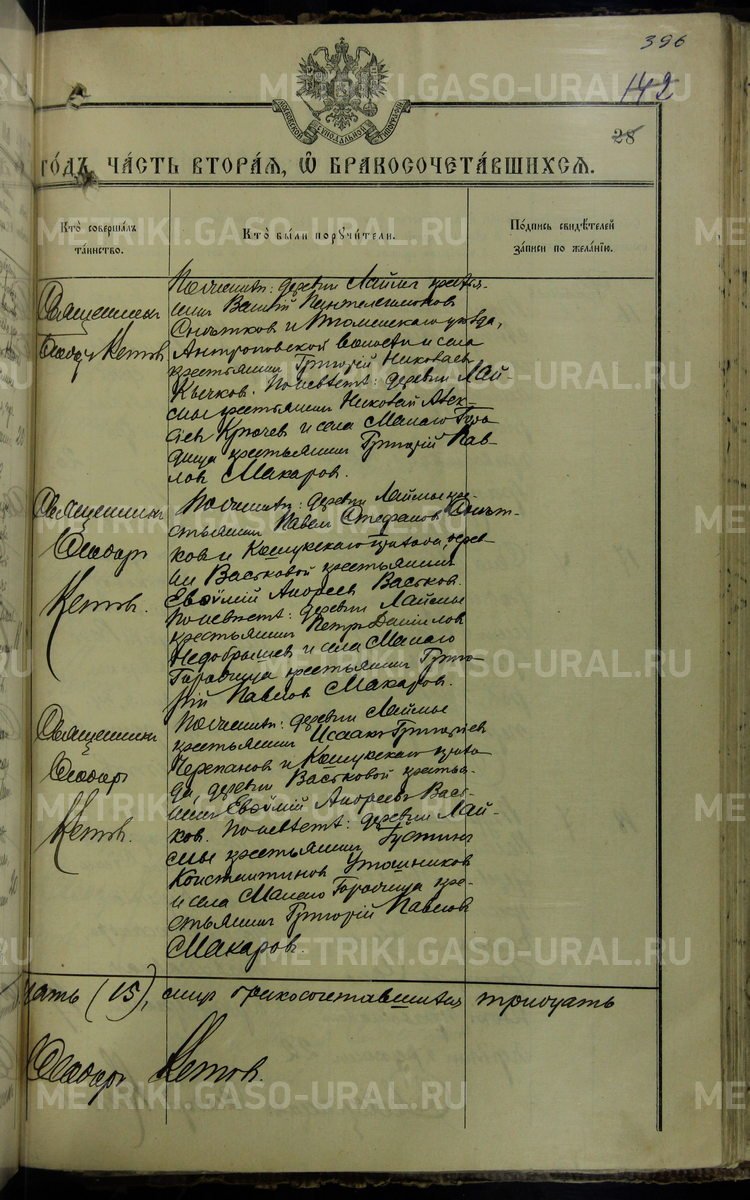 396
142
28
гóдъ, чáсть вторáѧ, ѽ бракосочетáвшихсѧ.
Ктò совершáлъ тáинство.
Ктò бы́ли порꙋчи́тели.
Пóдпись свидѣ́телей зáписи по желáнїю.
Священникъ
Ѳеодоръ Кетовъ
По женихѣ: деревни Лаймы крестья-
нинъ Василій Пантелеимоновъ
и Туринскаго уѣзда,
Антроповской волости и села
крестьянинъ Григорій Николаевъ
Кычковъ. По невѣстѣ: деревни Лай-
мы крестьянинъ Николай Алек-
сѣев и села Малаго Горо-
дища крестьянинъ Григорій Пав-
ловъ Макаровъ.
Священникъ
Ѳеодоръ
Кетовъ.
По женихѣ: деревни Лаймы кре-
стьянинъ Павелъ Стефановъ
и Кошукскаго прихода, дерев-
ни Вастковой крестьянинъ
Евѳимій Андреевъ Вастковъ.
По невѣстѣ: деревни Лаймы
крестьянинъ Петръ Даніиловъ
Недобрышевъ и села Малаго
Городища крестьянинъ Григо-
рій Павловъ Макаровъ.
Священникъ
Ѳеодоръ
Кетовъ.
По женихѣ: деревни Лаймы
крестьянинъ Исаакъ Григоріевъ
Черепановъ и Кошукскаго прихо-
да, деревни Вастковой крестья-
нинъ Евѳимій Андреевъ Васт-
ковъ. По невѣстѣ: деревни Лай-
мы крестьянинъ Густинъ
Константиновъ
и села Малаго Городища кре-
стьянинъ Григорій Павловъ
Макаровъ.
цать (15), лицъ бракосочетавшихся тридцать
Ѳеодоръ Кетовъ.
METRIKI.GASO-URAL.RU